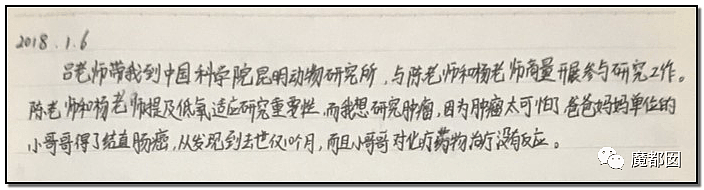 2018.1.6
吕老师带我到中国科学院昆明动物研究所,与陈老师和杨老师商量开展参与研究工作。
陈老师和杨老师提及低氧适应研究重要性,而我想研究肿瘤,因为肿瘤太可怕了,爸爸妈妈单位的
小哥哥得了结直肠癌,从发现到去世仅10个月,而且小哥哥对化疗药物治疗没有反应。
魔都囡